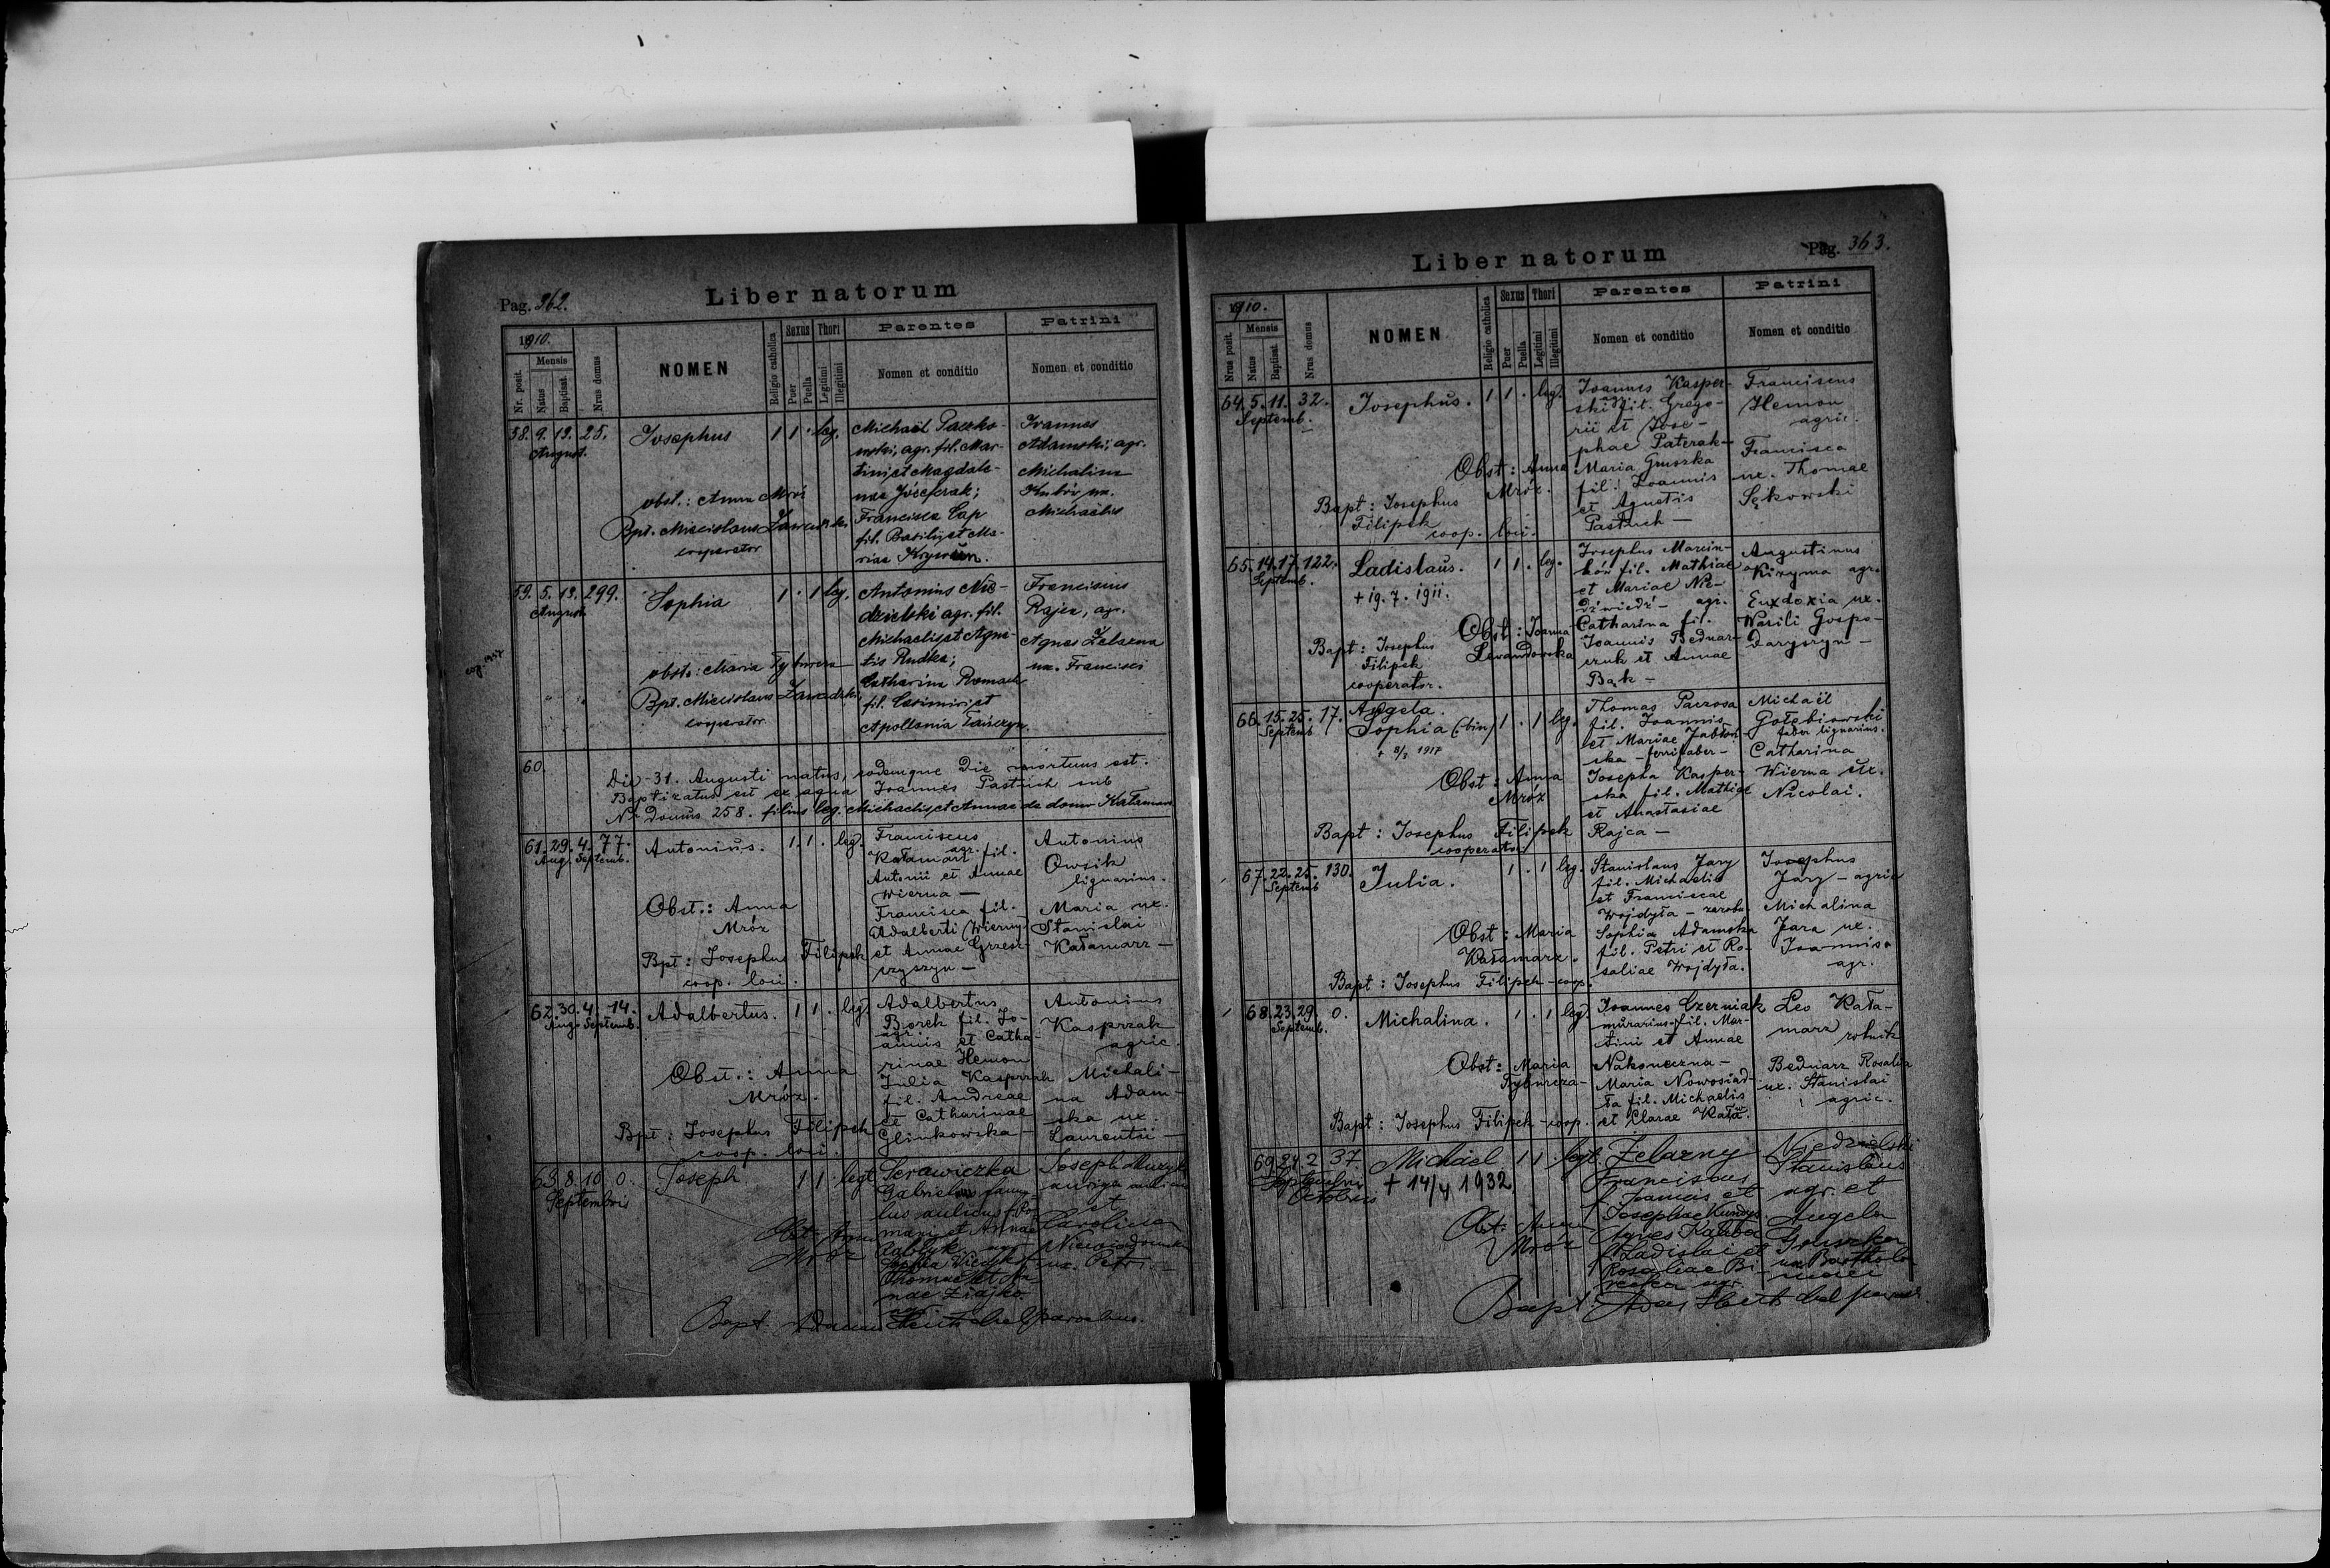 Pag. 362.
Liber natorum
1910.
Nr. posit.
Mensis
Natus
Baptisat.
Nrus domus
NOMEN
Religio catholica
Sexus
Puer
Puella
Thori
Legitimi
Illegitimi
Parentes
Nomen et conditio
Patrini
Nomen et conditio
58. 9. 13. 25.
August.
Josephus
1 1 . leg.
Michaël Paczko-
wski, agr. fil. Mar-
tini et Magdale-
nae Józefczak;
Francisca Cap
fil. Basilii et Ma-
riae
Joannes
Adamski, agr.
Michalina
ux.
Michaelis
obst.: Anna Mróz
Bpt. Miecislaus Zawadzki
cooperator
59. 5. 13. 299.
August.
Sophia
1 . 1 leg.
Antonius Nie-
dzielski agr. fil.
Michaelis et Agne-
tis Rudka;
Catharina Romach
fil. Casimiri et
Apollonia
Franciscus
Rajca, agr.
Agnes Żelazna
ux. Francisci
obst.: Maria Tyburcza
Bpt. Miecislaus Zawadzki
cooperator
60.
Die 31. Augusti natus, eodemque die mortuus est.
Baptizatus est ex aqua Joannes Pastuch sub
Nr. Domus 258. filius leg. Michaelis et Annae de domo Kałamarz
61. 29. 4. 77.
Aug. Septemb.
Antonius.
1. 1 . leg.
Franciscus
Kałamarz agr. fil.
Antonii et Annae
Wierna —
Francisca fil.
Adalberti Wierny
et Annae Grzesz-
czyszyn —
Antonius
Owsik
lignarius.
Maria ux.
Stanislai
Kałamarz —
Obst.: Anna
Mróz
Bpt: Josephus Filipek
coop. loci.
62. 30. 4. 14.
Aug. Septemb.
Adalbertus.
1 1 . leg.
Adalbertus
Borek fil. Jo-
agr.
annis et Catha-
rinae Hemon
Julia Kasprzak
fil. Andreae
et Catharinae
Glinkowska —
Antonius
Kasprzak
agric.
Michali-
na Adam-
ska ux.
Laurentii —
Obst.: Anna
Mróz.
Bpt: Josephus Filipek
coop. loci.
63. 8. 10. 0.
Septembris
Joseph
1 1 . legt
Gabriel famu-
lus aulicus f. Ro-
mani et Annae
Thomae et An-
nae Ziajko
agr.
Joseph Muzyk
auriga
et
Carolina
ux. Petri —
Obst: Anna
Mróz
Bapt. Adam parochus.
Pag. 363.
Liber natorum
1910.
Nrus posit.
Mensis
Natus
Baptisat.
Nrus domus
NOMEN
Religio catholica
Sexus
Puer
Puella
Thori
Legitimi
Illegitimi
Parentes
Nomen et conditio
Patrini
Nomen et conditio
64. 5. 11. 32.
Septemb.
Josephus.
1 1 . leg.
Joannes Kasper-
agr.
ski fil. Grego-
rii et Jose-
phae Paterak —
Maria Gruszka
fil. Joannis
et Agnetis
Pastuch —
Franciscus
Hemon
agric.
Francisca
ux. Thomae
Sękowski
Obst: Anna
Mróz.
Bapt: Josephus
Filipek
coop. loci.
65. 14. 17. 122.
Septemb.
Ladislaus.
+ 19. 7. 1911.
1 1 . leg.
Josephus Marcin-
ków fil. Mathiae
et Mariae Nie-
dźwiedź — agr.
Catharina fil.
Joannis Bednar-
czuk et Annae
Bąk —
Augustinus
Kiryma agr.
Euxdoxia ux.
Wasili Gospo-
daryszyn —
Obst: Joanna
Levandowska
Bapt: Josephus
Filipek
cooperator.
66. 15. 25. 17.
Septemb
Angela.
Sophia (bin)
+ 8/3 1917
1 . 1 leg.
Thomas Paczosa
fil. Joannis
et Mariae Jabłoń-
ska — ferrifaber —
Josepha Kasper-
ska fil. Mathiae
et Anastasiae
Rajca —
Michaël
Gołębiowski
faber lignarius.
Catharina
Wierna ux.
Nicolai.
Obst: Anna
Mróz
Bapt: Josephus Filipek
cooperator
67. 22. 25. 130.
Septemb
Julia.
1 . 1 leg.
Stanislaus Jary
fil. Michaelis
et Franciscae
Wojdyła — zarobn.
Sophia Adamska
fil. Petri et Ro-
saliae Wojdyła.
Josephus
Jary — agric
Michalina
Jara ux.
Joannis
agr.
Obst: Maria
Kałamarz.
Bapt: Josephus Filipek — coop.
68. 23. 29. 0.
Septemb.
Michalina.
1 . 1 leg.
Joannes Czerniak
murarius fil. Mar-
tini et Annae
Nakoneczna —
Maria Nowosiad-
ła fil. Michaelis
et Clarae Kała
Leo Kała-
marz
rolnik
Bednarz Rosalia
ux. Stanislai
agric.
Obst: Maria
Tyburcza —
Bapt: Josephus Filipek — coop.
69. 24. 2 37.
Septembri
Octobris
Michael
+ 14/4 1932
1 1 . legt.
Żelazny
Franciscus
f. Joannis et
Josephae
Agnes
f. Ladislai et
Rosaliae
agr.
Niedzielski
Stanislaus
agr. et
Angela
Gruszka
ux Bartholo-
maei
Obst: Anna
Mróz
Bapt: Adam